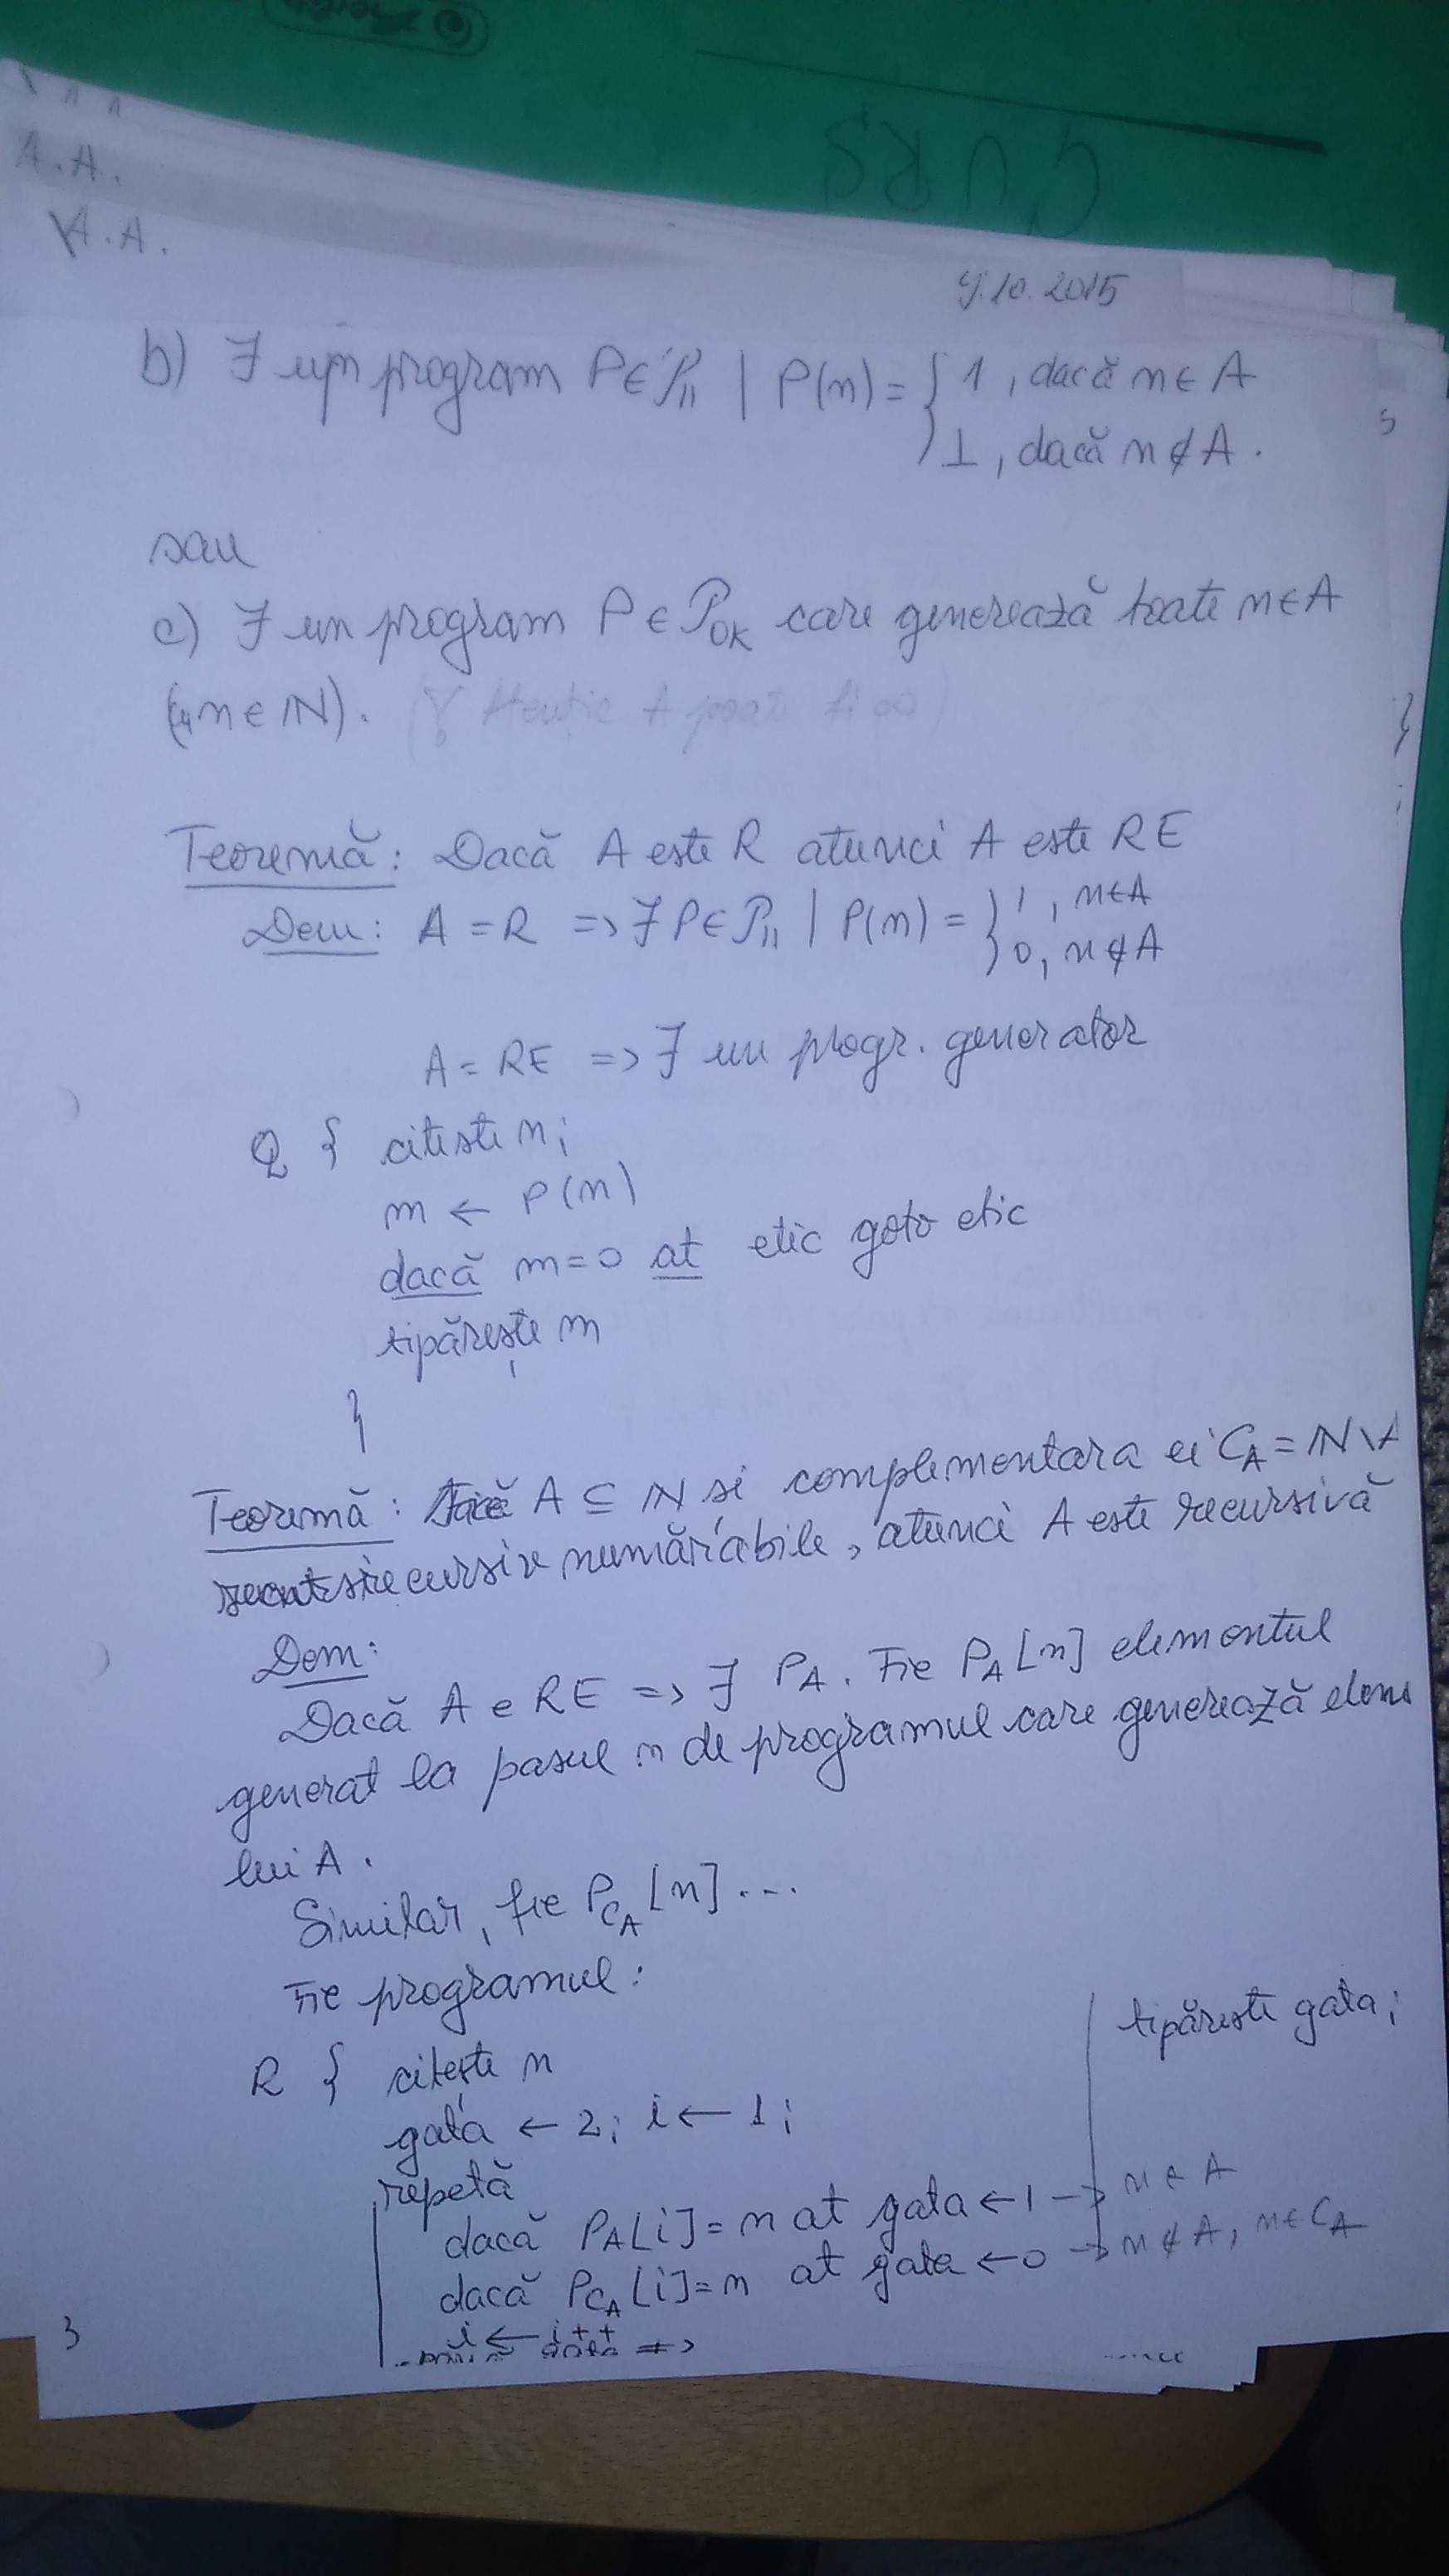 CURS
A.A.
A.A.
9.10.2015
b) ∃ un program P ∈ P₁₁ | P(n) = { 1, dacă n ∈ A
⊥, dacă n ∉ A.
sau
c) ∃ un program P ∈ P₀ₖ care generează toate n ∈ A
(n ∈ ℕ). (Atenție A poate fi ∞)
Teoremă: Dacă A este R atunci A este RE
Dem: A = R => ∃ P ∈ P₁₁ | P(n) = { 1, n ∈ A
0, n ∉ A
A = RE => ∃ un progr. generator
Q { citește n;
m ← P(n)
dacă m = 0 at etic goto etic
tipărește m
}
Teoremă: Dacă A ⊆ ℕ si complementara ei C_A = ℕ \ A
recursiv numărabile, atunci A este recursivă
Dem:
Dacă A e RE => ∃ P_A. Fie P_A[n] elementul
generat la pasul n de programul care generează elem
lui A.
Similar, fie P_{C_A}[n] ...
Fie programul:
R { citește n
gata ← 2; i ← 1;
repetă
dacă P_A[i] = n at gata ← 1 → n ∈ A
dacă P_{C_A}[i] = n at gata ← 0 → n ∉ A, n ∈ C_A
i ← i++
tipărește gata;
3